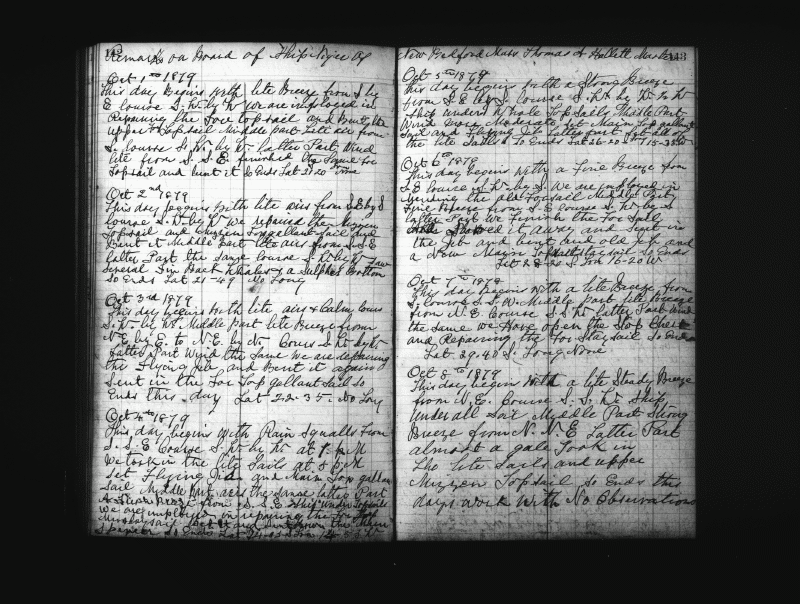 Remarks on Board of Ship Niger of
Oct 1st 1879
This day Begins With lite Breeze from S by
E course S. W. by W we are imployed in
Repairing the Fore topsail and Bent the
upper Topsail Middle part Lite air from
S. course S. W. by W latter Part Wind
lite from S. S. E. finished the Same
Topsail and bent it So Ends Lat 21-20
Oct 2nd 1879
This day begins With lite airs from S E by S
course S. W. by W We repaired the Mizzen
Topsail and Mizzen Topgallant sail and
Bent it Middle part lite airs from S. S. E
latter Part the same course S. W. by W Saw
Several Fin Back Whales & a Sulpher Bottom
So Ends Lat 21-49 No Long
Oct 3rd 1879
This day begins With lite airs & Calm cours
S. W. by W. Middle Part lite Breeze from
N. E by E. to N. E. by N. Cours S. W. by W
latter Part Wind the Same We are repairing
the Flying Jib and Bent it again
Sent in the For Top gallant sail So
Ends this day Lat 22-35- No Long
Oct 4th 1879
This day begins With Rain Squalls From
S. S. E Course S. W. by W. at 1 P. M
We took in the lite Sails at 5 P. M
Set Flying Jib and Main Top gallan
Sail Middle Part airs the Same latter Part
from S. S. E Ship under Topsails
we are imployed in repairing the For Top
and
So Ends Lat
143
New Bedford Mass Thomas H Hallett Master
Oct 5th 1879
This day begins With a Strong Breeze
from S. E by S. Course S. W. by W. ½ W
Ship under Whole Top Sails Middle Part
Wind More Moderate Set Main Top gallant
Sail and Flying Jib latter part Set all of
the lite Sails So Ends Lat 26-22 S
Oct 6th 1879
This day begins With a Fine Breeze from
S. E course S. W. by S. We are imployed in
Mending the old Fortsail Middle Part
Fine Breeze S. E course S. W. by S
latter Part We finish the For Sail
Stowed it away and Sent in
the Jib and bent and old Jib and
a new Main Topmast stay sail So Ends
Lat 28-22 S Lon 16-20 W
Oct 7th 1879
This day begins With a lite Breeze from
S. Course S. S. W. Middle part lite Breeze
from N. E. Course S. S. W. latter Part Wind
the Same We Broke open the Slop Chest
and Repairing the For Stay sail So Ends
Lat. 29.40 S. Long None
Oct 8th 1879
This day begin With a lite Steady Breeze
from N. E. Course S. S. W. Ship
Under all Sail Middle Part Strong
Breeze from N. N. E Latter Part
almost a gale Took in
The lite Sails and upper
Mizzen Topsail So Ends this
days work With No Observations